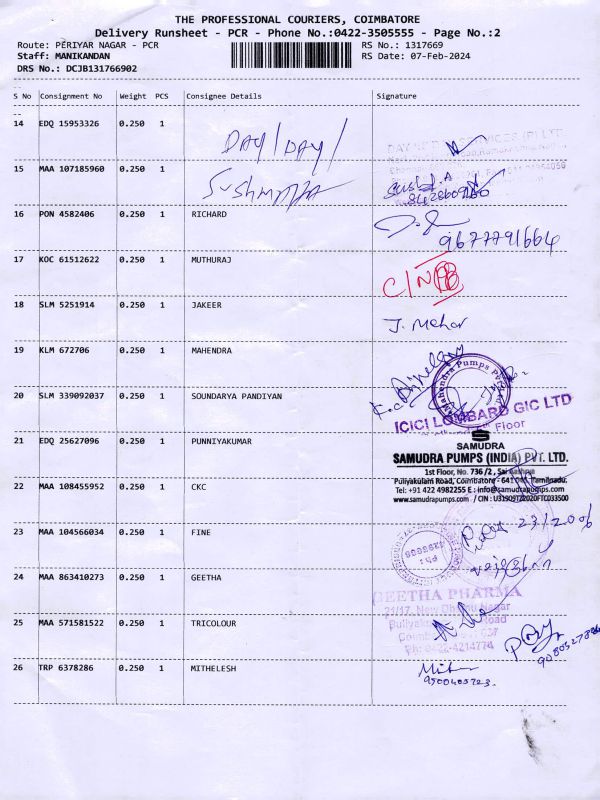 THE PROFESSIONAL COURIERS, COIMBATORE
Delivery Runsheet - PCR - Phone No.:0422-3505555 - Page No.:2
Route: PERIYAR NAGAR - PCR RS No.: 1317669
Staff: MANIKANDAN RS Date: 07-Feb-2024
DRS No.: DCJB131766902
S No Consignment No Weight PCS Consignee Details Signature
14 EDQ 15953326 0.250 1 DAY/DAY/
15 MAA 107185960 0.250 1
16 PON 4582406 0.250 1 RICHARD 9677791664
17 KOC 61512622 0.250 1 MUTHURAJ
18 SLM 5251914 0.250 1 JAKEER J. Mehar
19 KLM 672706 0.250 1 MAHENDRA
Mahendra Pumps
20 SLM 339092037 0.250 1 SOUNDARYA PANDIYAN
ICICI LOMBARD GIC LTD
Floor
21 EDQ 25627096 0.250 1 PUNNIYAKUMAR
SAMUDRA
SAMUDRA PUMPS (INDIA) PVT. LTD.
1st Floor, No. 736/2,
Puliyakulam Road, Coimbatore - 641 Tamilnadu.
22 MAA 108455952 0.250 1 CKC
Tel: +91 422 4982255 E : info@samudrapumps.com
www.samudrapumps.com / CIN : U31909TZ2020FTC033500
23 MAA 104566034 0.250 1 FINE
24 MAA 863410273 0.250 1 GEETHA
GEETHA PHARMA
21/17, New Nagar
25 MAA 571581522 0.250 1 TRICOLOUR
Road
Ph: 0422-4214774
26 TRP 6378286 0.250 1 MITHELESH